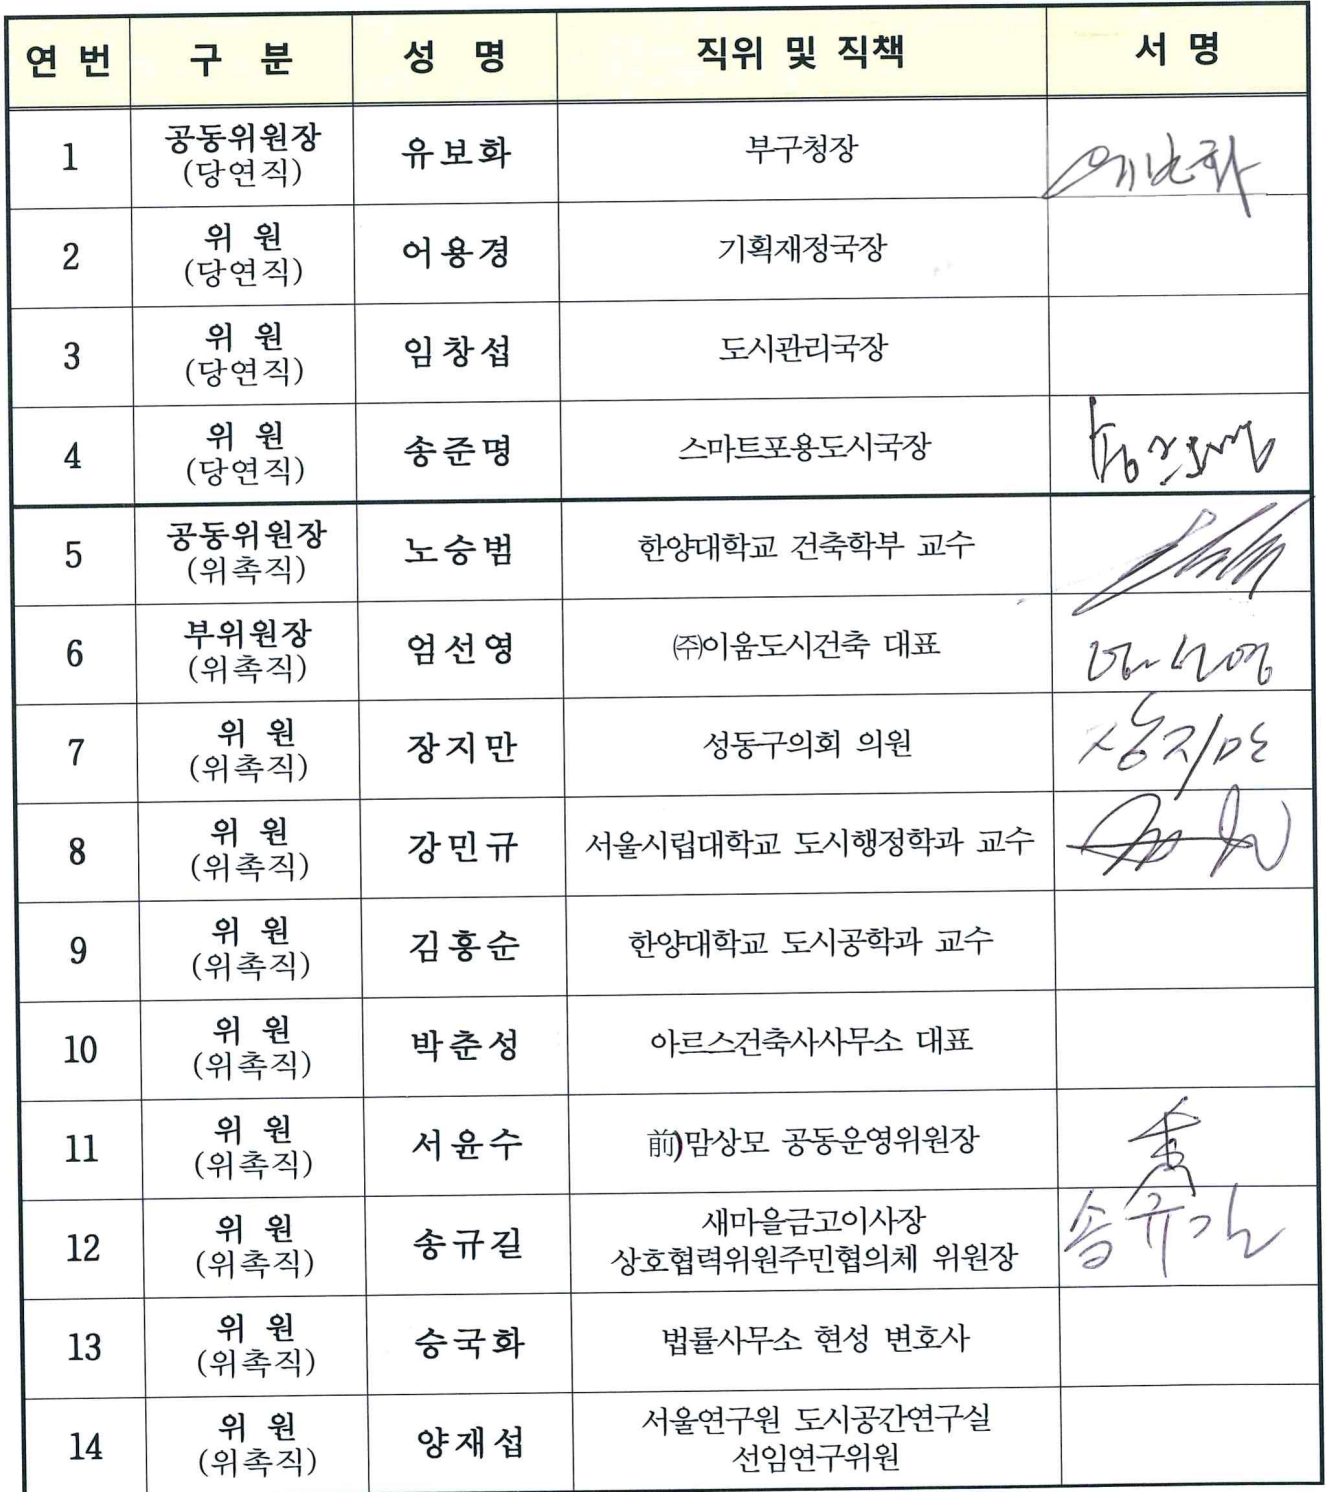 연 번 구 분 성 명 직위 및 직책 서 명
1 공동위원장 (당연직) 유보화 부구청장 유보화
2 위 원 (당연직) 어용경 기획재정국장
3 위 원 (당연직) 임창섭 도시관리국장
4 위 원 (당연직) 송준명 스마트포용도시국장
5 공동위원장 (위촉직) 노승범 한양대학교 건축학부 교수
6 부위원장 (위촉직) 엄선영 ㈜이움도시건축 대표 엄선영
7 위 원 (위촉직) 장지만 성동구의회 의원 장지만
8 위 원 (위촉직) 강민규 서울시립대학교 도시행정학과 교수
9 위 원 (위촉직) 김흥순 한양대학교 도시공학과 교수
10 위 원 (위촉직) 박춘성 아르스건축사사무소 대표
11 위 원 (위촉직) 서윤수 前)맘상모 공동운영위원장
12 위 원 (위촉직) 송규길 새마을금고이사장 송규길
상호협력위원주민협의체 위원장
13 위 원 (위촉직) 승국화 법률사무소 현성 변호사
14 위 원 (위촉직) 양재섭 서울연구원 도시공간연구실
선임연구위원